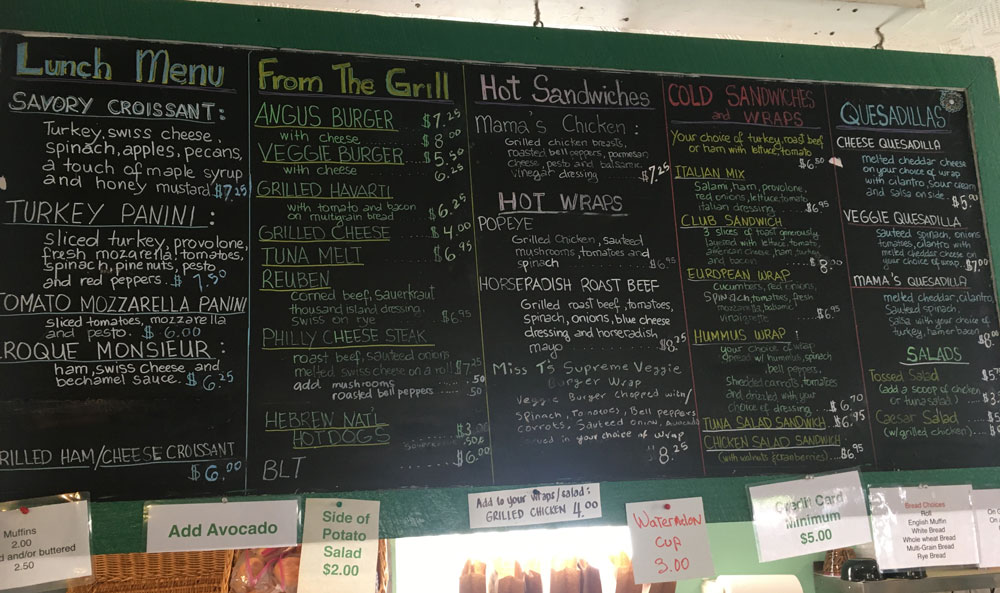 Lunch Menu
SAVORY CROISSANT:
Turkey, swiss cheese,
spinach, apples, pecans,
a touch of maple syrup
and honey mustard $7.25
TURKEY PANINI:
sliced turkey, provolone,
fresh mozarella, tomatoes,
spinach, pine nuts, pesto
and red peppers..$ 7.50
TOMATO MOZZARELLA PANINI
sliced tomatoes, mozzarella
and pesto. $ 6.00
CROQUE MONSIEUR:
ham, swiss cheese and
bechamel sauce. $ 6.25
GRILLED HAM/CHEESE CROISSANT
$ 6.00
From The Grill
ANGUS BURGER $7.25
with cheese $ 8.00
VEGGIE BURGER $5.50
with cheese 6.25
GRILLED HAVARTI
with tomato and bacon
on multigrain bread $6.25
GRILLED CHEESE $ 4.00
TUNA MELT $ 6.95
REUBEN
corned beef, sauerkraut
thousand island dressing.
Swiss on rye $6.95
PHILLY CHEESE STEAK
roast beef, sauteed onions
melted swiss cheese on a roll $7.25
add mushrooms .50
roasted bell peppers .50
HEBREW NAT'L
HOT DOGS $3.00
.50
BLT $6.00
Hot Sandwiches
Mama's Chicken:
Grilled chicken breasts,
roasted bell peppers, parmesan
cheese, pesto and balsamic
vinegar dressing $7.25
HOT WRAPS
POPEYE
Grilled Chicken, sauteed
mushrooms, tomatoes and
spinach $6.95
HORSERADISH ROAST BEEF
Grilled roast beef, tomatoes,
spinach, onions, blue cheese
dressing and horseradish
mayo $8.25
Miss T's Supreme Veggie
Burger Wrap
Veggie Burger chopped with/
Spinach, Tomatoes, Bell peppers
carrots, Sauteed Onion, Avocado
served in your choice of wrap
$8.25
COLD SANDWICHES
and WRAPS
Your choice of turkey, roast beef
or ham with lettuce, tomato
$6.50
ITALIAN MIX
Salami, ham, provolone,
red onions, lettuce, tomato
italian dressing $6.95
CLUB SANDWICH
3 slices of toast generously
layered with lettuce, tomato,
american cheese, ham, turkey
and bacon $ 8.00
EUROPEAN WRAP
cucumbers, red onions,
spinach, tomatoes, fresh
mozzarella, balsamic
vinaigrette $6.95
HUMMUS WRAP:
your choice of wrap
spread w/ hummus, spinach
, bell peppers,
shredded carrots, tomatoes
and drizzled with your
choice of dressing $ 6.70
TUNA SALAD SANDWICH $6.95
CHICKEN SALAD SANDWICH
(with walnuts & cranberries) $6.95
QUESADILLAS
CHEESE QUESADILLA
melted cheddar cheese
on your choice of wrap
with cilantro, sour cream
and salsa on side. $5.00
VEGGIE QUESADILLA
sauteed spinach, onions
tomatoes, cilantro with
melted cheddar cheese on
your choice of wrap. $7.00
MAMA'S QUESADILLA
melted cheddar, cilantro,
Sauteed spinach,
salsa with your choice of
turkey, ham or bacon $8.00
SALADS
Tossed Salad $5.
(add a scoop of chicken
or tuna salad) $3.
Caesar Salad $5
(w/ grilled chicken)
Muffins
2.00
and/or buttered
2.50
Add Avocado
Side of
Potato
Salad
$2.00
Add to your wraps/salad:
GRILLED CHICKEN 4.00
Watermelon
Cup
3.00
Credit Card
Minimum
$5.00
Bread Choices
Roll
English Muffin
White Bread
Whole wheat Bread
Multi-Grain Bread
Rye Bread
On
On